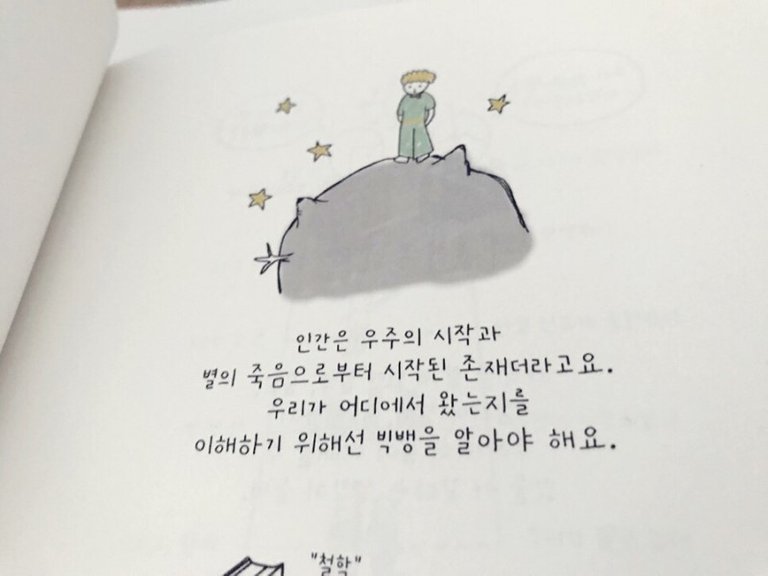 인간은 우주의 시작과
별의 죽음으로부터 시작된 존재더라고요.
우리가 어디에서 왔는지를
이해하기 위해선 빅뱅을 알아야 해요.
"철학"